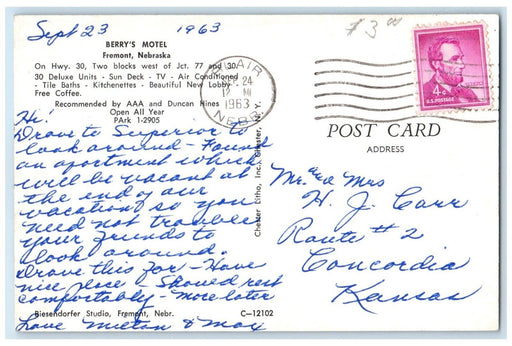 Sept 23 1963
$3.00
BERRY'S MOTEL
Fremont, Nebraska
On Hwy. 30, Two blocks west of Jct. 77 and 30.
30 Deluxe Units - Sun Deck - TV - Air Conditioned
- Tile Baths - Kitchenettes - Beautiful New Lobby -
Free Coffee.
Recommended by AAA and Duncan Hines
Open All Year
PArk 1-2905
BLAIR
SEP 24
1963
NEBR.
4¢
U.S. POSTAGE
Hi!
Drove to Superior to
look around - Found
an apartment which
will be vacant at
the end of our
vacation so you
need not trouble
your friends to
look around.
Drove this far - Have
nice place - Should rest
comfortably - more later
Love Milton & Max
Chester Litho, Inc., Chester, N. Y.
POST CARD
ADDRESS
Mr. and Mrs
H. J. Carr
Route #2
Concordia
Kansas
Biesendorfer Studio, Fremont, Nebr.
C-12102